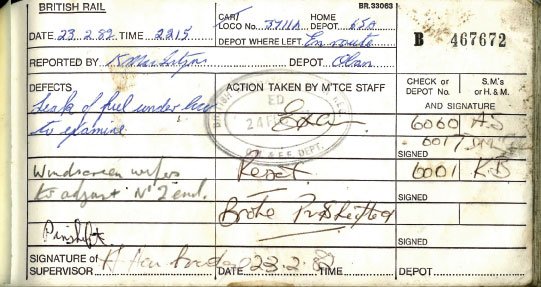 BRITISH RAIL
CART HOME BR.33063
LOCO No. 37112 DEPOT 65A
DATE 23.2.82 TIME 2215
DEPOT WHERE LEFT En route
B 467672
REPORTED BY DEPOT Oban
DEFECTS
ACTION TAKEN BY M'TCE STAFF
CHECK or DEPOT No.
S.M's or H. & M.
AND SIGNATURE
Leak of fuel under loco
to examine
ED
24 FEB
& E E DEPT.
Exam
6060 A.S
6017
SIGNED
Windscreen wipers
to adjust No 2 end.
Reset
6001 K.B
SIGNED
Broke
SIGNED
SIGNATURE of
SUPERVISOR
DATE 23.2.82 TIME
DEPOT